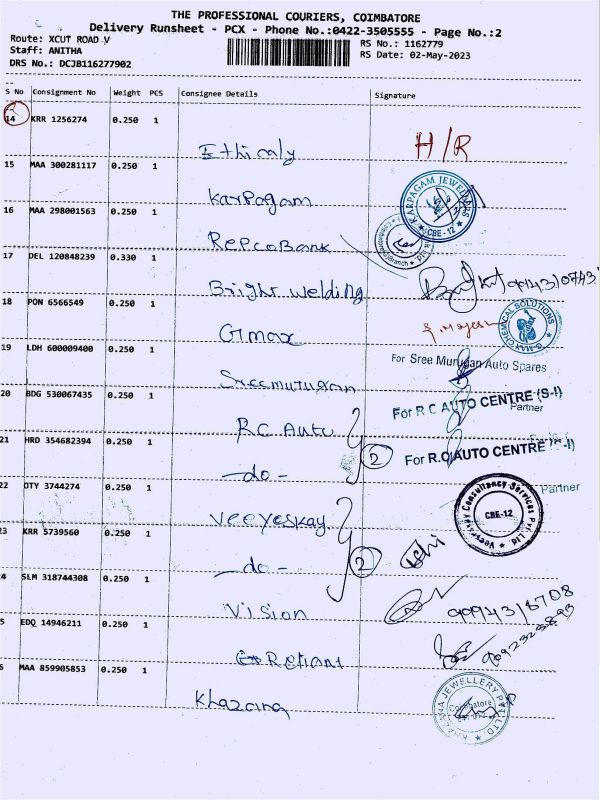 THE PROFESSIONAL COURIERS, COIMBATORE
Delivery Runsheet - PCX - Phone No.:0422-3505555 - Page No.:2
Route: XCUT ROAD V
RS No.: 1162779
Staff: ANITHA
RS Date: 02-May-2023
DRS No.: DCJB116277902
S No Consignment No Weight PCS Consignee Details Signature
14 KRR 1256274 0.250 1
Ethicaly H/R
15 MAA 300281117 0.250 1
Karpagam KARPAGAM JEWELLERS CBE-12
16 MAA 298001563 0.250 1
RepcoBank
17 DEL 120848239 0.330 1
Bright welding
18 PON 6566549 0.250 1
Gmax G-MAX CHEMICAL SOLUTIONS
19 LDH 600009400 0.250 1
For Sree Murugan Auto Spares
Sreemurugan
Partner
20 BDG 530067435 0.250 1
For R C AUTO CENTRE (S-I)
RC Auto
21 HRD 354682394 0.250 1
2 For R.C AUTO CENTRE
-do-
Partner
22 OTY 3744274 0.250 1
Veeyeskay Veeyeskay Consultancy Services Pvt Ltd CBE-12
23 KRR 5739560 0.250 1
-do- 2
4 SLM 318744308 0.250 1
Vision
5 EDQ 14946211 0.250 1
Reliant
6 MAA 859905853 1
Khazana KHAZANA JEWELLERY PVT LTD Coimbatore